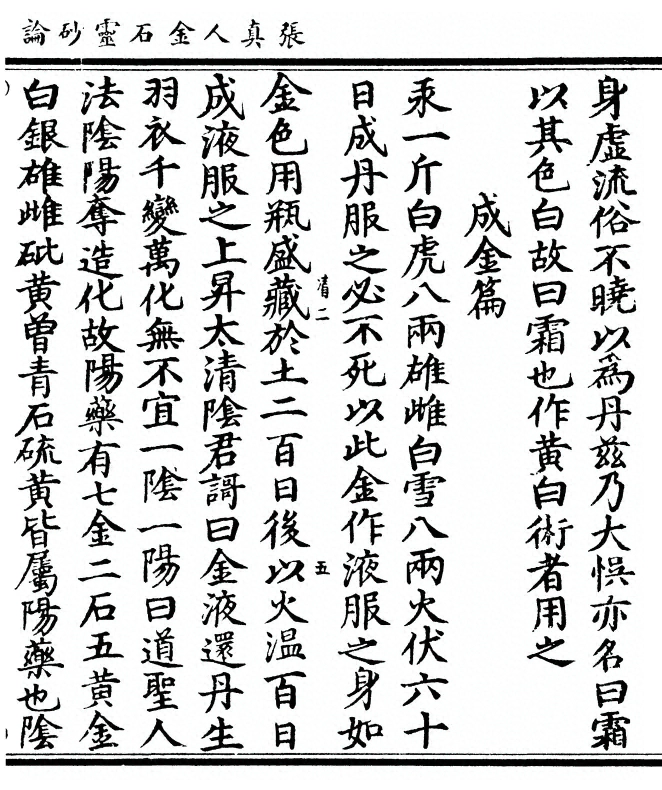 張真人金石靈砂論
身虛流俗不曉以為丹茲乃大悮亦名曰霜
以其色白故曰霜也作黃白術者用之
成金篇
汞一斤白虎八兩雄雌白雪八兩火伏六十
日成丹服之必不死以此金作液服之身如
清二
五
金色用瓶盛藏於土二百日後以火温百日
成液服之上昇太清陰君謌曰金液還丹生
羽衣千變萬化無不宜一陰一陽曰道聖人
法陰陽奪造化故陽藥有七金二石五黃金
白銀雄雌砒黃曾青石硫黃皆屬陽藥也陰